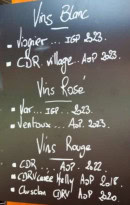 Vins Blanc
Viognier ... IGP 2023.
CDR village.. AOP 2023.
Vins Rosé
Var... IGP.. 2023.
Ventoux... AOP. 2023.
Vins Rouge
CDR ... AOP. 2022.
CDR AOP 2018.
CDRV AOP 2020